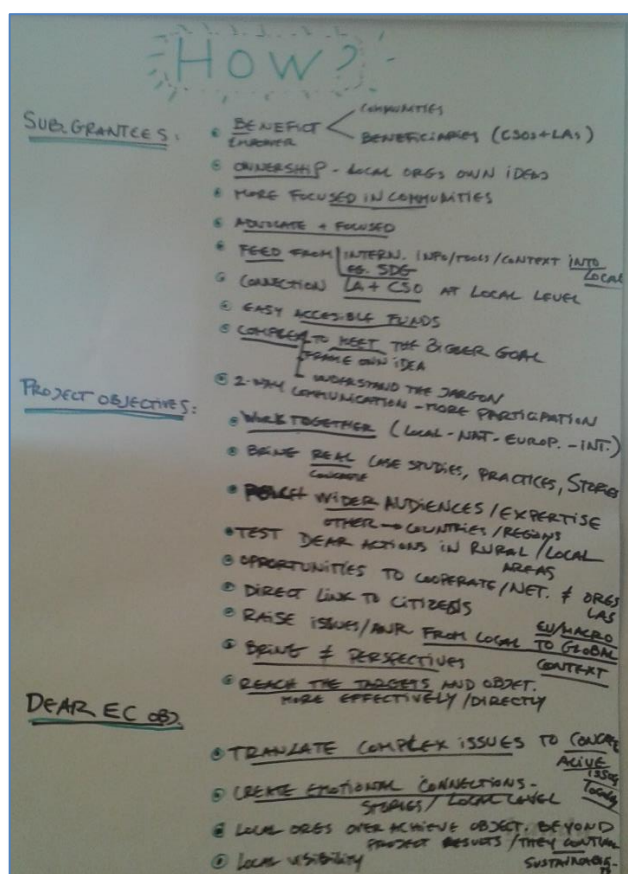 HOW?
COMMUNITIES
SUBGRANTEES:
BENEFICT
BENEFICIARIES (CSOS+LAS)
EMPOWER
OWNERSHIP - LOCAL ORGS OWN IDEAS
MORE FOCUSED IN COMMUNITIES
ADVOCATE + FOCUSED
FEED FROM INTERN. INFO/TOOLS/CONTEXT INTO
EG. SDG LOCAL
CONNECTION LA + CSO AT LOCAL LEVEL
EASY ACCESIBLE FUNDS
COMPLEX TO MEET THE BIGGER GOAL
FRAME OWN IDEA
UNDERSTAND THE JARGON
2-WAY COMMUNICATION - MORE PARTICIPATION
PROJECT OBJECTIVES:
WORK TOGETHER (LOCAL - NAT - EUROP. - INT.)
BRING REAL CASE STUDIES, PRACTICES, STORIES
CONCRETE
REACH WIDER AUDIENCES / EXPERTISE
OTHER → COUNTRIES / REGIONS
TEST DEAR ACTIONS IN RURAL / LOCAL
AREAS
OPPORTUNITIES TO COOPERATE / NET. ≠ ORGS
LAS
DIRECT LINK TO CITIZENS
RAISE ISSUES / AWR FROM LOCAL TO GLOBAL
EU/MACRO
CONTEXT
BRING ≠ PERSPECTIVES
REACH THE TARGETS AND OBJET.
MORE EFFECTIVELY / DIRECTLY
DEAR EC OBJ.
TRANSLATE COMPLEX ISSUES TO
ALIVE
ISSUES
LOCALLY
CREATE EMOTIONAL CONNECTIONS -
STORIES / LOCAL LEVEL
LOCAL ORGS OVER ACHIEVE OBJECT. BEYOND
PROJECT RESULTS / THEY
LOCAL VISIBILITY